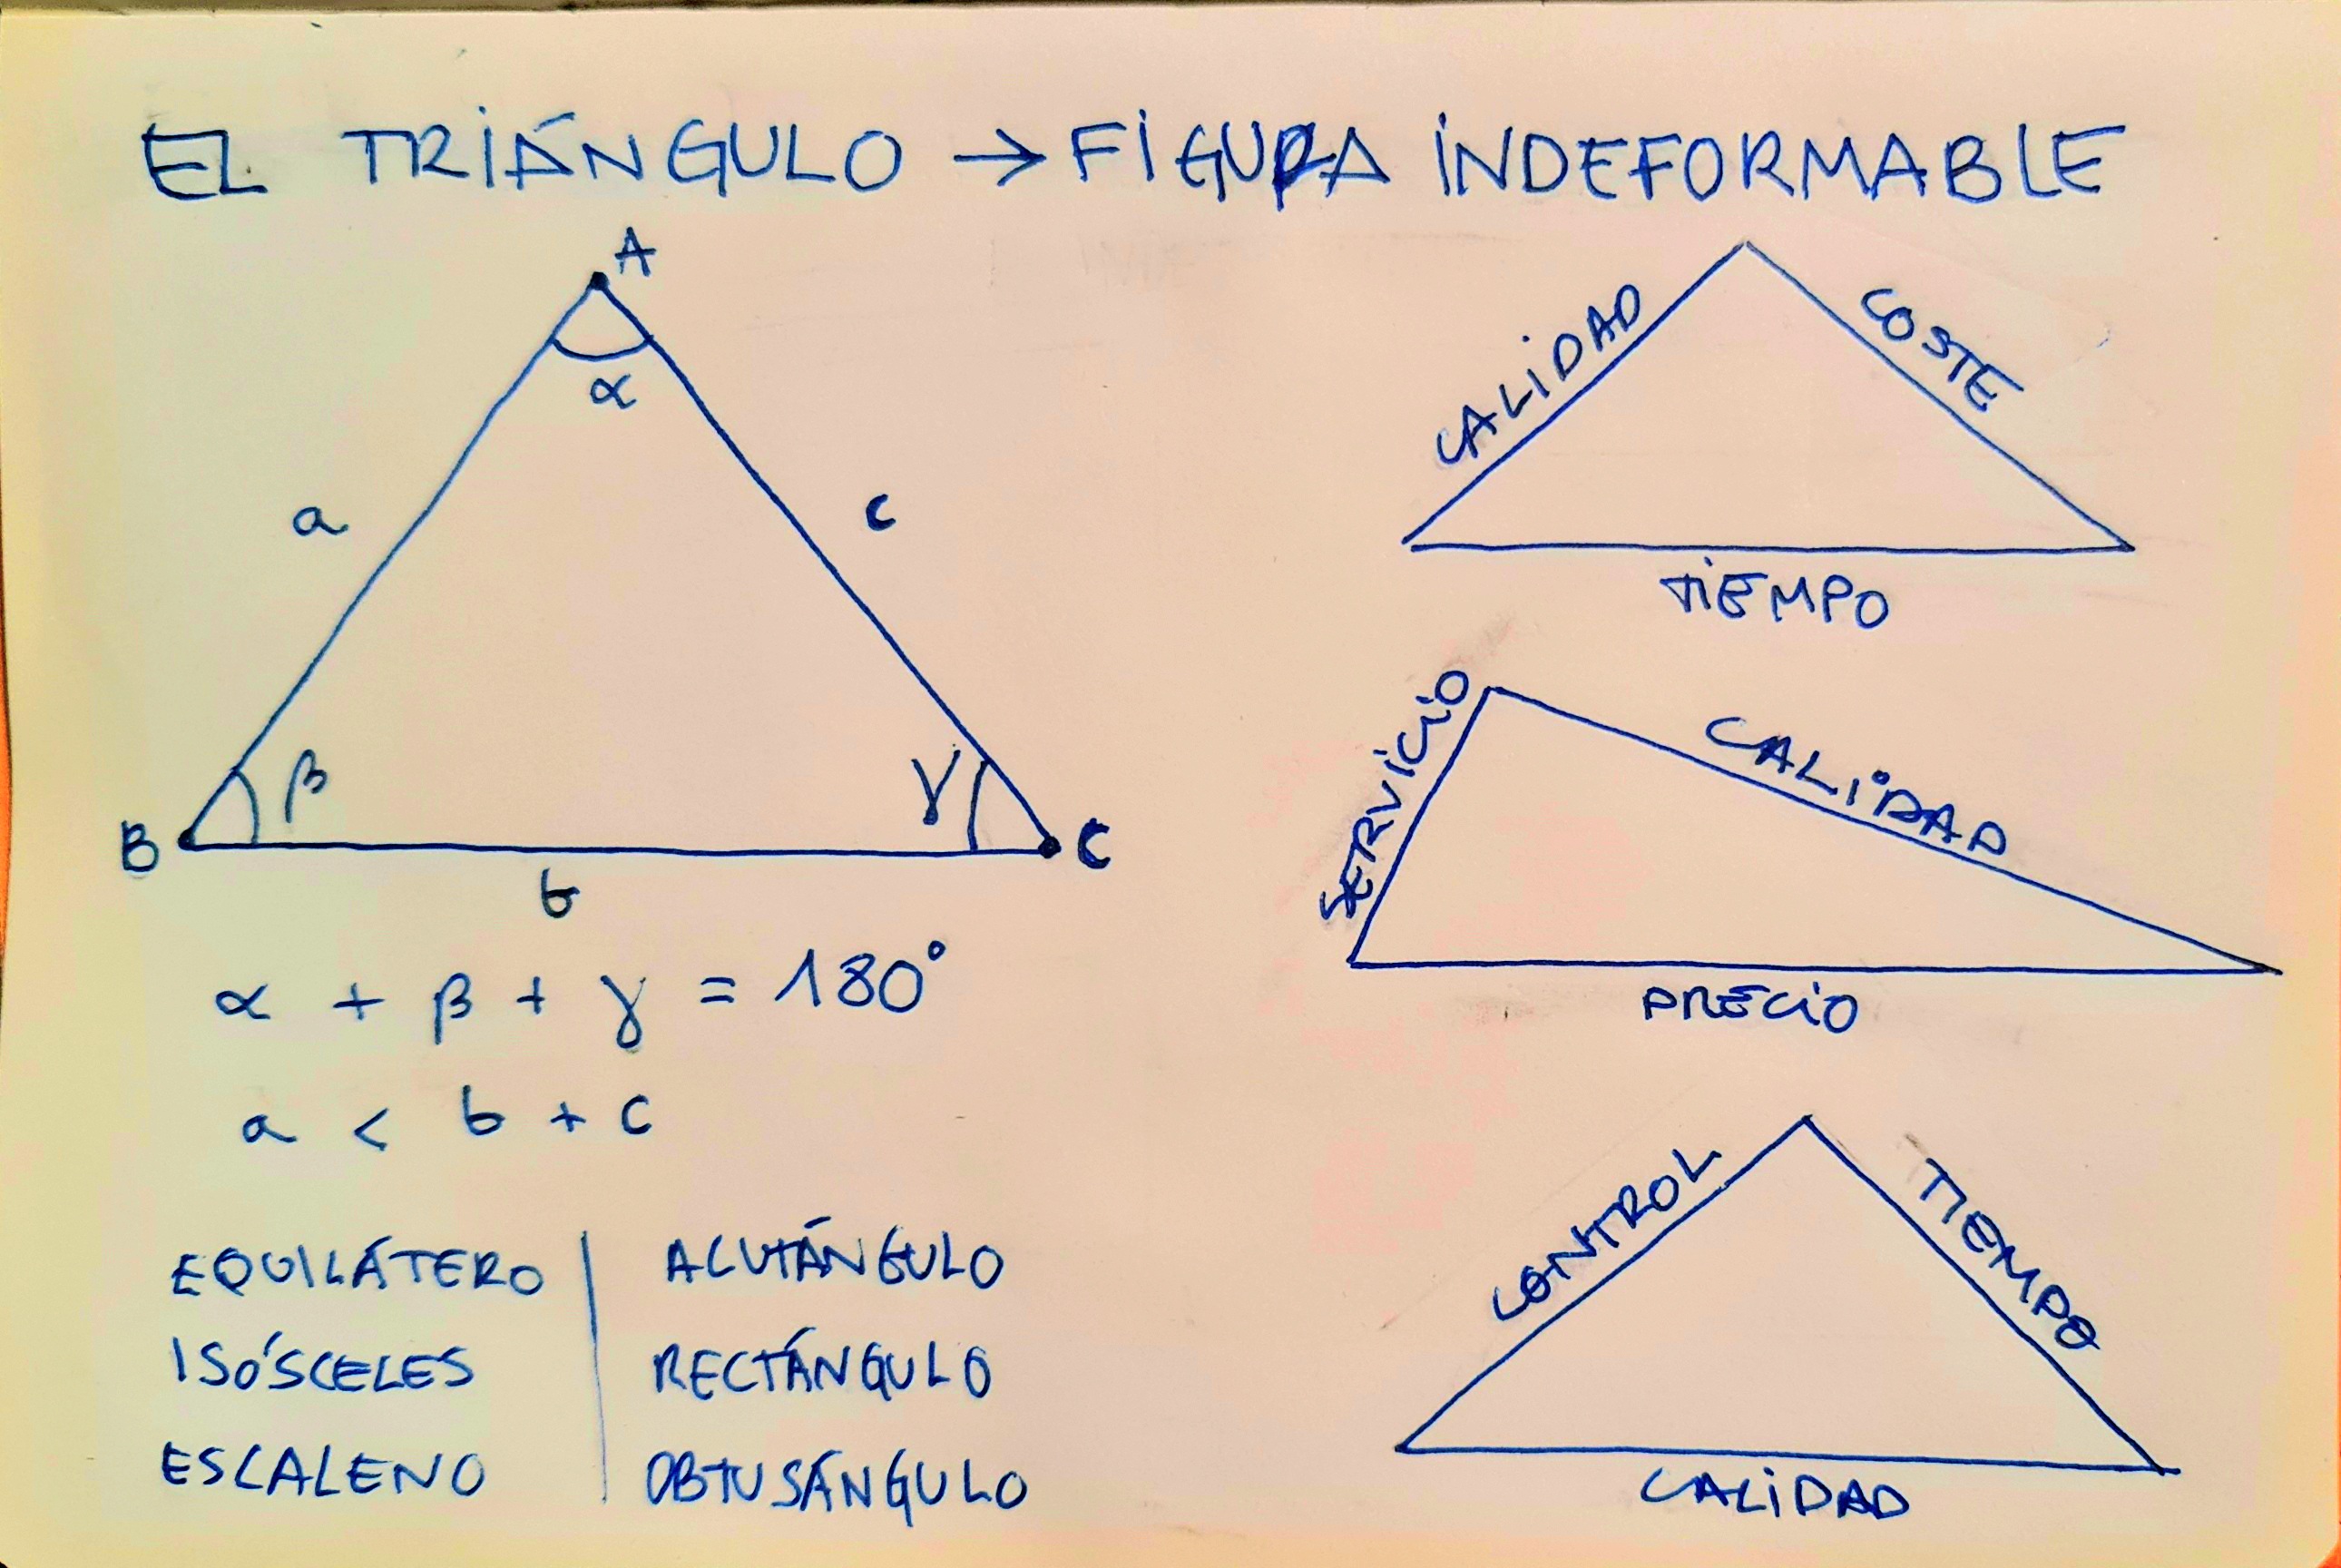 EL TRIÁNGULO → FIGURA INDEFORMABLE
A
α
a
c
β
γ
B
C
b
α + β + γ = 180°
a < b + c
EQUILÁTERO | ACUTÁNGULO
ISÓSCELES | RECTÁNGULO
ESCALENO | OBTUSÁNGULO
CALIDAD
COSTE
TIEMPO
SERVICIO
CALIDAD
PRECIO
CONTROL
TIEMPO
CALIDAD